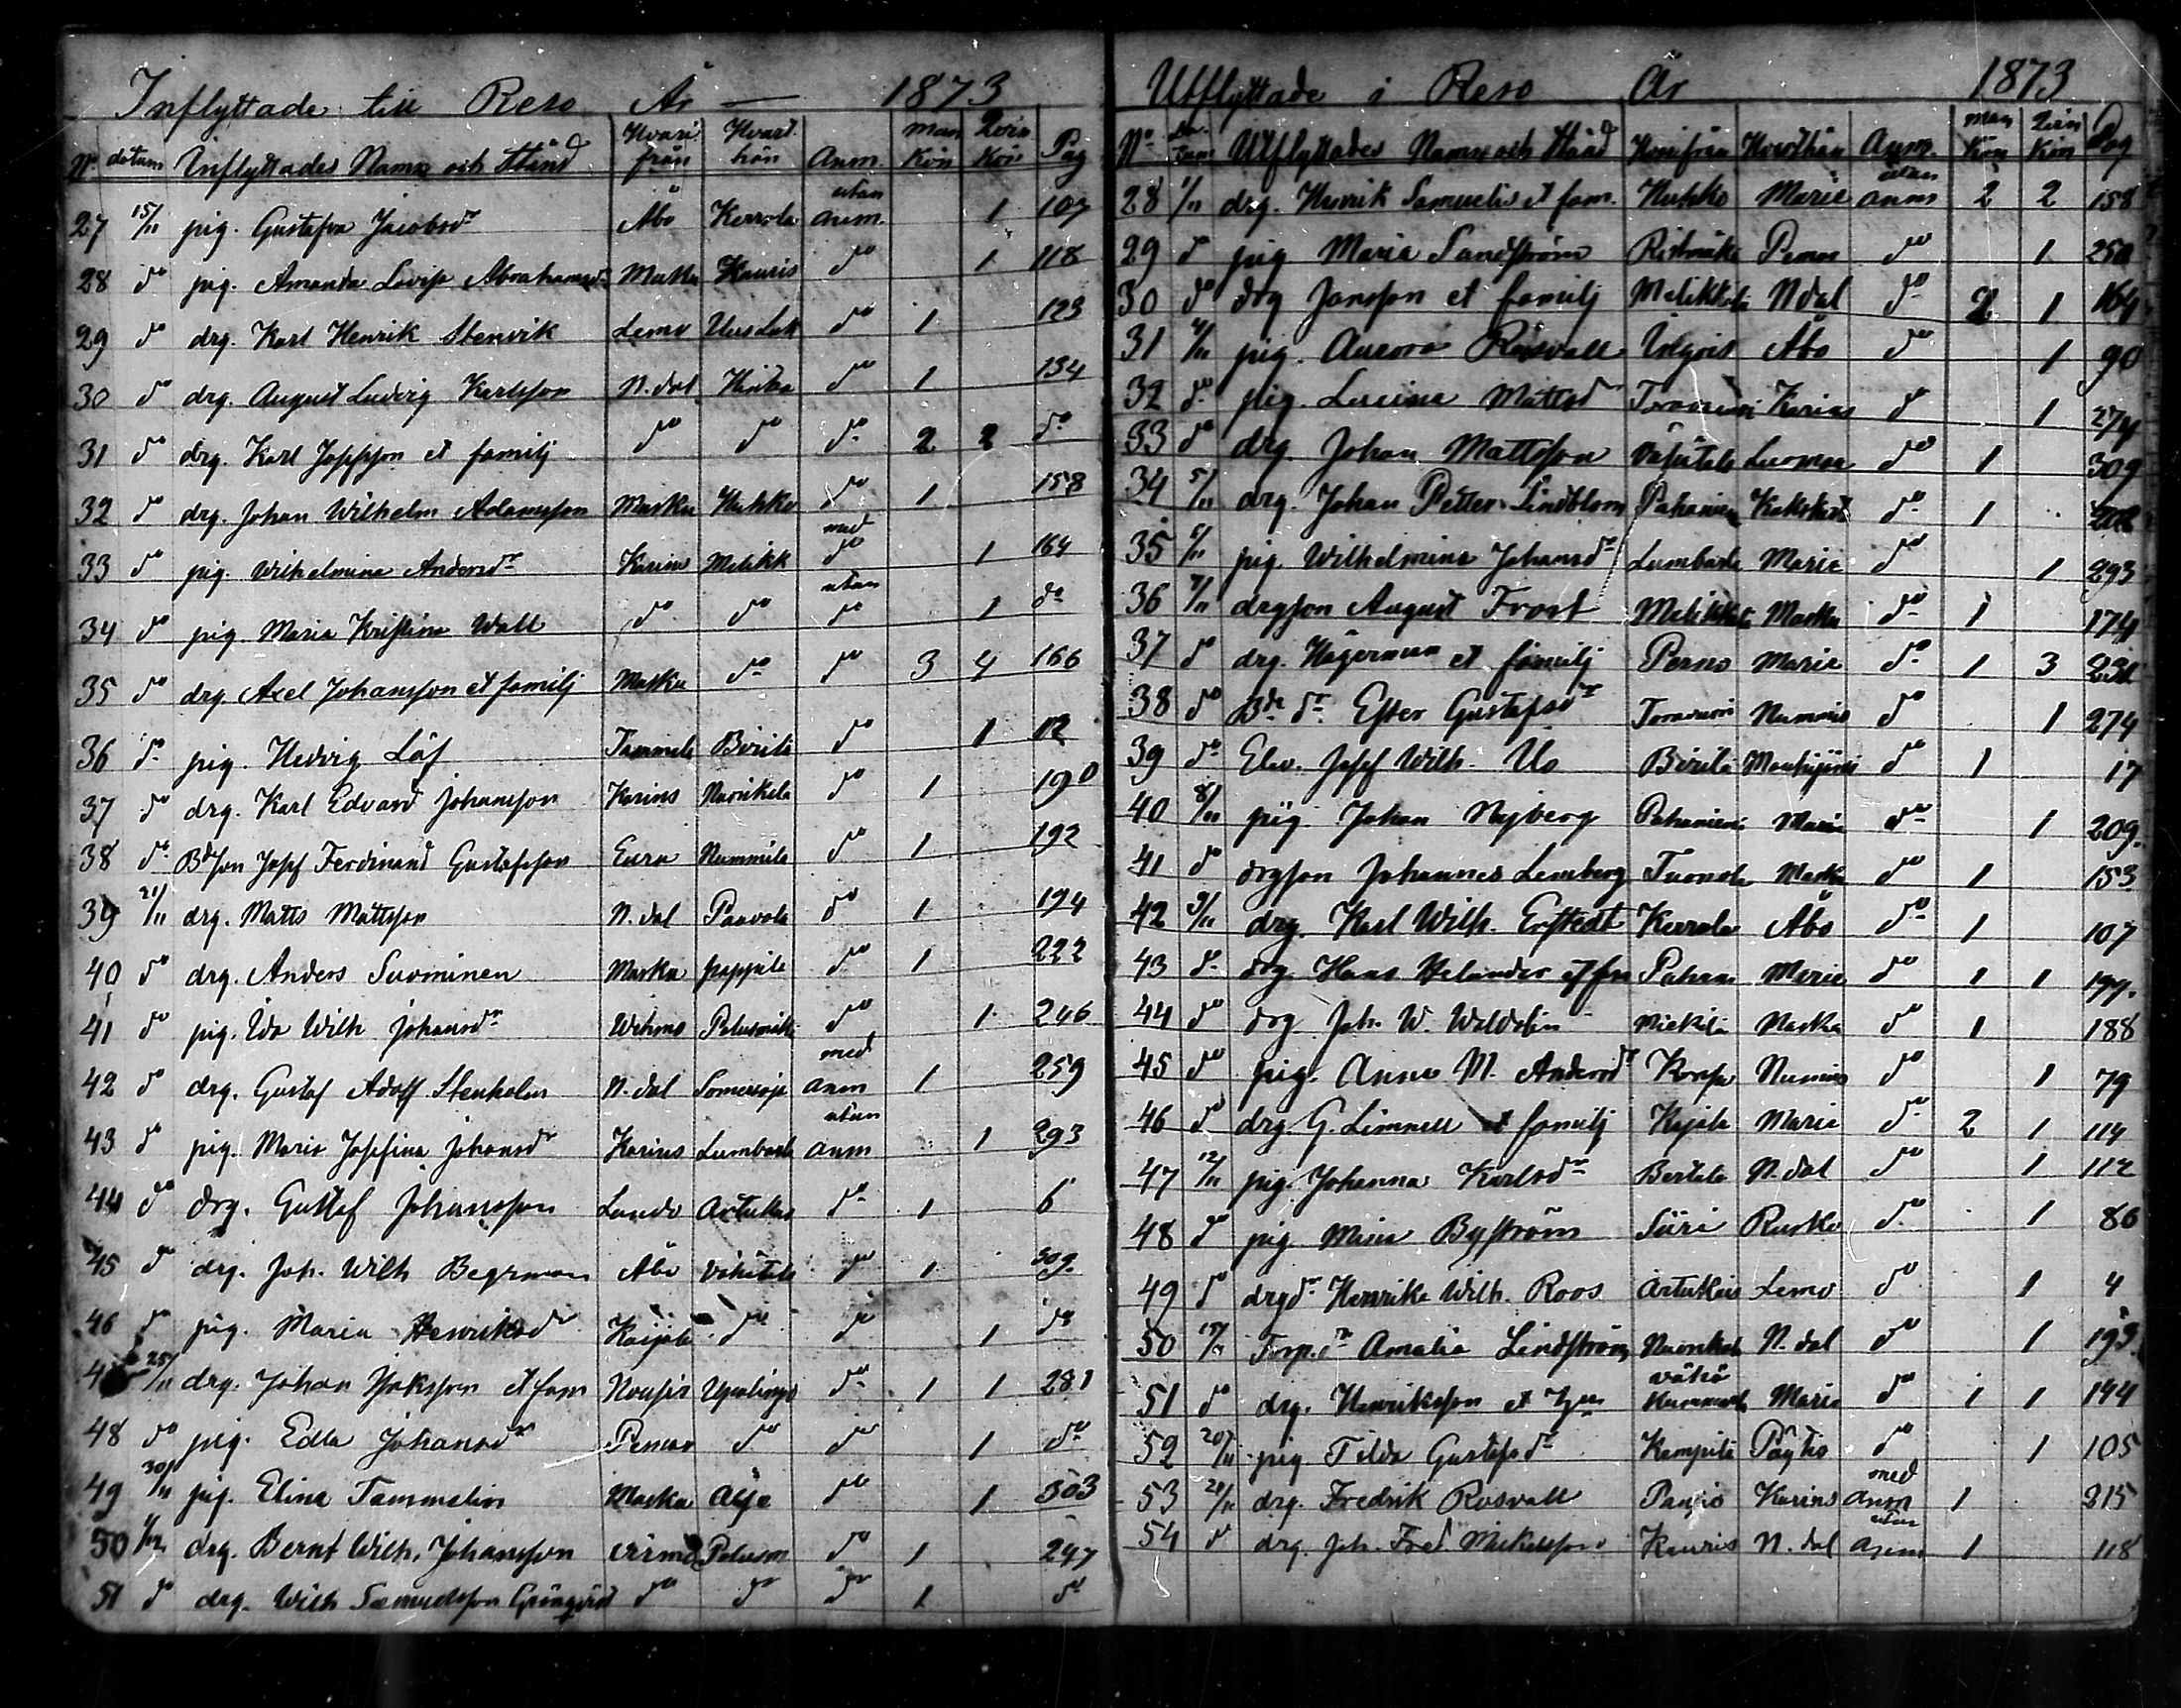 Inflyttade till Reso År — 1873
No datum Inflyttades Namn och Stånd Hvari från Hvart hän Anm. man Kön Qvin Kön Pag
27 15/11 pig. Gustafva Jacobsdr Åbo Kerrola utan anm. 1 107
28 do pig. Amanda Lovisa Abrahamsdr Masku Kauris do 1 118
29 do drg. Karl Henrik Stenvik Lemo do 1 123
30 do drg. August Ludvig Karlsson N. dal do 1 134
31 do drg. Karl Josefsson et familj do do do 2 2 do
32 do drg. Johan Wilhelm Adamsson Masku Huhko do 1 158
33 do pig. Wilhelmina Andersdr Karins Melikk med do 1 164
34 do pig. Maria Kristina Wall do do utan do 1 do
35 do drg. Axel Johansson et familj Masku do do 3 4 166
36 do pig. Hedvig Löf Tammela Birila do 1 12
37 do drg. Karl Edvard Johansson Karins Navrikela do 1 190
38 do Bdson Josef Ferdinand Gustafsson Eura Nummila do 1 192
39 21/11 drg. Matts Mattsson N. dal Paavola do 1 194
40 do drg. Anders Suominen Masku do 1 222
41 do pig. Ida Wilh Johansdr Wehmo do 1 246
42 do drg. Gustaf Adolf Stenholm N. dal Somersoja med anm 1 259
43 do pig. Maria Josefina Johansdr Karins Lumbarla utan anm 1 293
44 do drg. Gustaf Johansson Lundo Artukas do 1 6
45 do drg. Joh. Wilh Bergman Åbo Vihetele do 1 309
46 do pig. Maria Henriksdr Kaijala do do 1 do
25/11 drg. Johan Isaksson et fam Nousis Upalinga do 1 1 281
48 do pig. Edla Johansdr Pemar do do 1 do
49 30/11 pig. Elina Tammelin Masku do 1 303
50 1/12 drg. Bernt Wilh. Johansson Virmo do 1 247
51 do drg. Wilh Samuelsson Grönqvist do do do 1 do
Utflyttade i Reso År 1873
No Datum Utflyttades Namn och Stånd Hvarifrån Hvarthän Anm. man Kön Qvin Kön Pag
28 1/11 drg. Henrik Samuels et fam. Huhko Marie utan anm 2 2 158
29 do pig Maria Sandström Ristimäki Pemar do 1 250
30 do drg Jansson et familj Melikkala N dal do 2 1 164
31 4/11 pig. Aurora Rosvall Ihlgois Åbo do 1 90
32 do pig. Lucina Mattsd Karins do 1 274
33 do drg. Johan Mattsson Luonmaa do 1 309
34 5/11 drg. Johan Petter Lindblom Pahaniemi Kakskerta do 1
35 6/11 pig Wilhelmina Johansdr Lumbarla Marie do 1 293
36 7/11 drgson August Frost Melikkala Masku do 1 174
37 do drg. Hägerman et familj Perno Marie do 1 3
38 do Bde dr Ester Gustafsdr Nummis do 1 274
39 do Elev. Josef Wilh. Us Birila do 1 17
40 8/11 pig. Johan Nyberg Pahaniemi Marie do 1 209.
41 do drgson Johannes Lemberg Masku do 1 153
42 9/11 drg. Karl Wilh. Erstedt Kerrola Åbo do 1 107
43 do drg. Hans Helander et fru Pahan Marie do 1 1
44 do drg Joh. W. Waldolin Mickila Masku do 1 188
45 do pig. Anna M. Andersdr Korpo Nummis do 1 79
46 do drg. G. Limnell et familj Kajala Marie do 2 1 114
47 12/11 pig. Johanna Karlsdr Bertela N. dal do 1 112
48 do pig Mina Byström Siiri Rusko do 1 86
49 do drgdr Henrika Wilh. Roos Artukais Lemo do 1 4
50 15/11 Torp.dr Amalia Lindström N. dal do 1 193
51 do drg. Henriksson et hu vähä Hummerla Marie do 1 1 144
52 20/11 pig Tilda Gustafsdr Kampila Pöytis do 1 105
53 21/11 drg. Fredrik Rosvall Pansio Karins med anm 1 215
54 do drg. Joh. Fred. Mickelsson Kauris N. dal utan anm 1 118